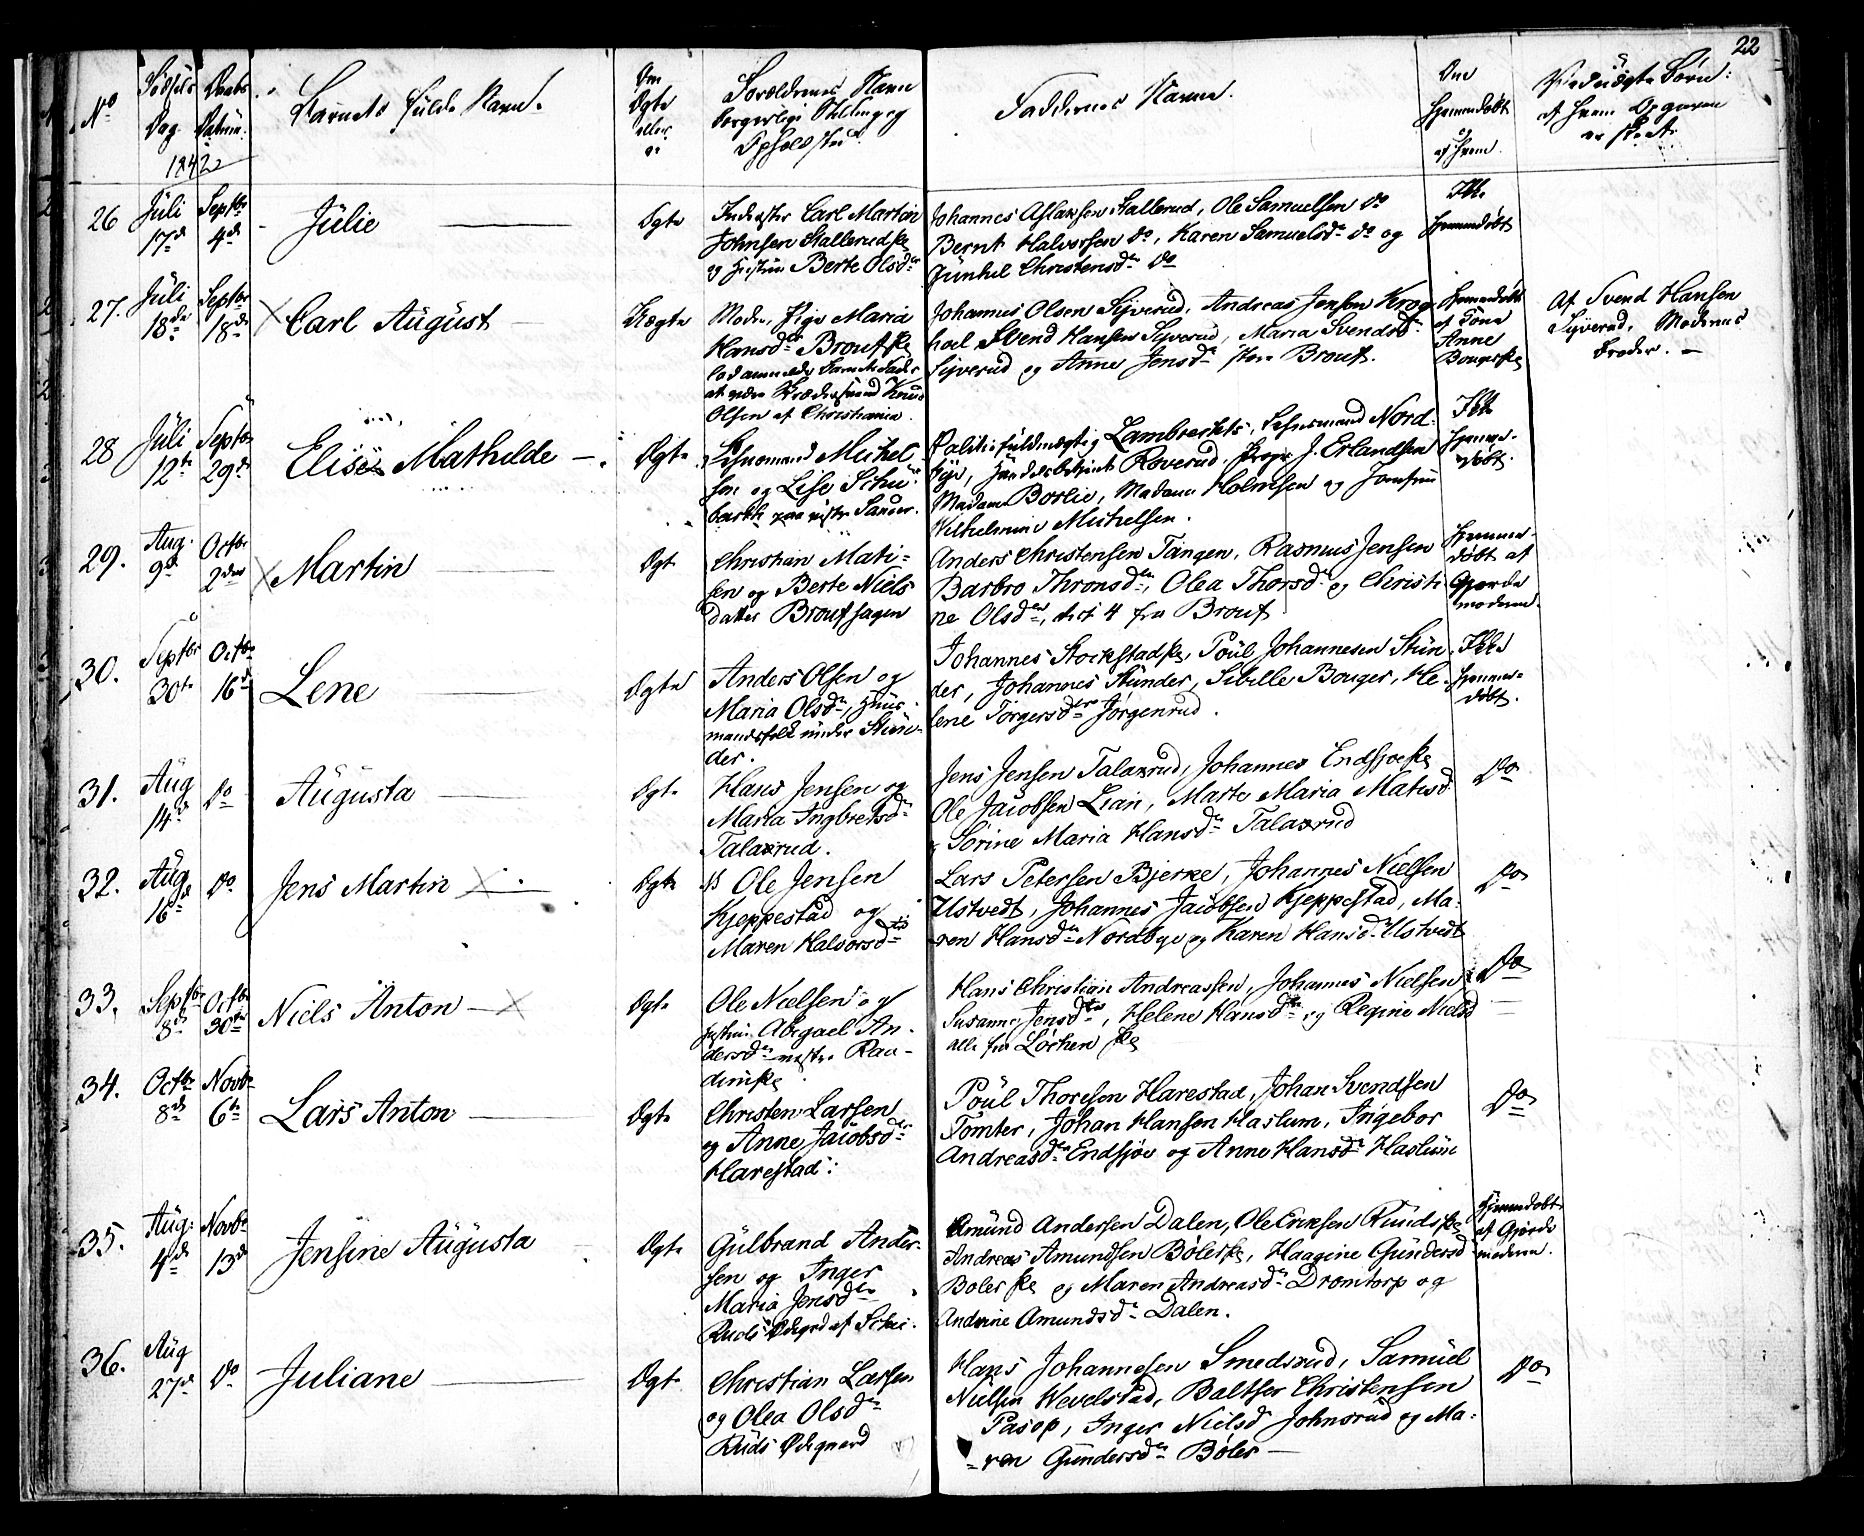 22
No
Fødsels Dag
Daabs Datum.
Barnets fulde Navn.
Om Ægte eller ei
Forældrenes Navn
borgerlige Stilling og
Opholdsted
Faddernes Navne.
Om
hjemmedøbt
af hvem.
Ved uægte Børn:
af hvem Opgaven
er skeet
1842
26 Juli 17de Septbr 4de Julie Ægte
Inderster Carl Martin
Johnsen Stallerudske
og Hustrue Berte Olsdr
Johannes Aslaksen Stallerud, Ole Samuelsen do
Bernt Halvorsen do, Karen Samuelsdr do og
Gunhil Christensdr do
Ikke
hjemmedøbt
27. Juli 18de Septbr 18de Carl August Uægte
Moder, Pige Maria
Hansdr Brouts
Barnets Fader
at være Knud
Olsen af Christiania.
Johannes Olsen Syverud, Andreas Jensen Krog
hoel Svend Hansen Syverud, Maria Svendsdr
Syverud og Anne Jensdr Brout.
hjemmedøbt
af
Anne
Af Svend Hansen
Syverud, Moderens
Broder.
28 Juli 12te Septbr 29de Elise Mathilde Ægte
Lehnsmand Mickel
sen og Lise Schu
barth
Politiefuldmægtig Lambrechts, Lehnsmand Nord
bye, Handelsbetjent Røverud, J. Erlandsen
Madam Borlie, Madam Holmsen og Jomfrue
Wilhelmine Mickelsen.
Ikke
hjemme-
døbt.
29. Aug. 9de Octbr 2den Martin Ægte
Christian Mati-
sen og Berte Niels
datter Brouthagen
Anders Christensen Tangen, Rasmus Jensen
Barbro Thronsdr, Olea Thorsdr og Christi
ne Olsdr, de 4 fra Brout
Hjemme-
døbt af
Gjorde
moderen.
30. Septbr 30te Octbr 16de Lene Ægte
Anders Olsen og
Maria Olsdr, Huus
mandsfolk under Stun-
der.
Johannes Stockstad, Poul Johannesen Stun
der, Johannes Stunder, Sibille Bouger, He-
lene Torgersdr Jørgenrud.
Ikke
hjemme-
døbt.
31. Aug 14de Do Augusta Ægte
Hans Jensen og
Maria Ingbretsdr
Talaxrud.
Jens Jensen Talaxrud, Johannes Endsjø
Ole Jacobsen Lian, Marte Maria Matisd
Sørine Maria Hansdr Talaxrud
Do
32. Aug 16de Do Jens Martin Ægte
Ole Jensen
Kjeppestad og
Maren Halvorsdr
Lars Petersen Bjerke, Johannes Nielsen
Ustvedt, Johannes Jacobsen Kjeppestad, Ma-
ren Hansdr Nordbye og Karen Hansdr Ustvedt
Do
33. Septbr 8de Octbr 30te Niels Anton Ægte
Ole Nielsen og
Hustrue Abigael An-
dersdr
Hans Christian Andreassen, Johannes Nielsen
Susanne Jensdr, Helene Hansdr og Regine Nielsd
alle fra Løcken
Do
34. Octbr 8de Novbr 6te Lars Anton Ægte
Christen Larsen
og Anne Jacobsdr
Harestad:
Poul Thoresen Harestad, Johan Svendsen
Tomter, Johan Hansen Haslum, Ingebor
Andreasdr Endsjøe og Anne Hansdr Haslum
Do
35. Aug: 4de Novbr 13de Jensine Augusta Ægte
Gulbrand Ander-
sen og Inger
Maria Jensdr
Ruds Ødegrd af Schie.
Amund Andersen Dalen, Ole Eriksen Ruuds
Andreas Amundsen Bøler, Haagine Gundersd
Boler og Maren Andreasdr Dromtorp og
Andrine Amundsdr Dalen.
Hjemmedøbt
af Gjorde
moderen.
36. Aug 27de Do Juliane Ægte
Christian Larsen
og Olea Olsdr
Ruds Ødegaard
Hans Johannesen Smedsrud, Samuel
Nielsen Wevelstad, Baltser Christensen
Pasop, Inger Nielsd Johnsrud og Ma-
ren Gundersdr Bøler
Do